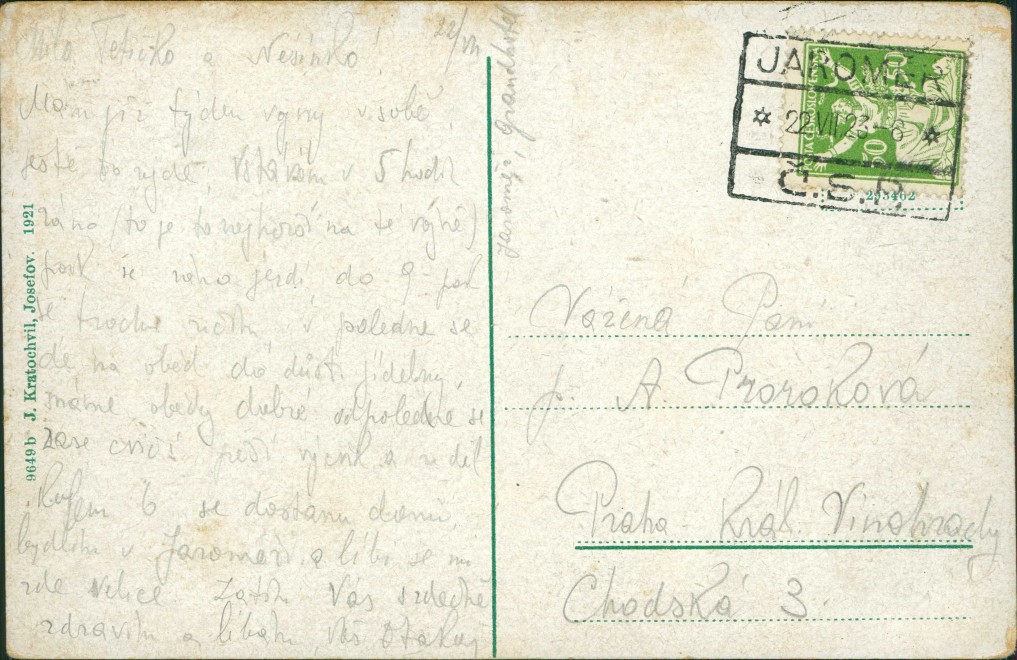 Milá Tetičko a Nešinko! 22/VII
Mám již týden výcviku v sobě,
ještě to ujde. Vstávám v 5 hodin
ráno (to je to nejhorší na té vojně)
pak se do 9 - pak
se trochu v poledne se
de na oběd do důst. jídelny,
máme obědy dobré odpoledne se
zase cvičí pěší výcvik a
Kolem 6 se dostanu domů,
bydlím v Jaroměři a líbí se mi
zde velice. Zatím Vás srdečně
zdravím a líbám, Váš Otakar
Jaroměř, Grandhotel
9649 b J. Kratochvil, Josefov. 1921
JAROMĚŘ
22.VII.23-8
Č.S.R.
50
50
203462
Vážená Paní
A. Prorokova
Praha - Král. Vinohrady
Chodská 3.